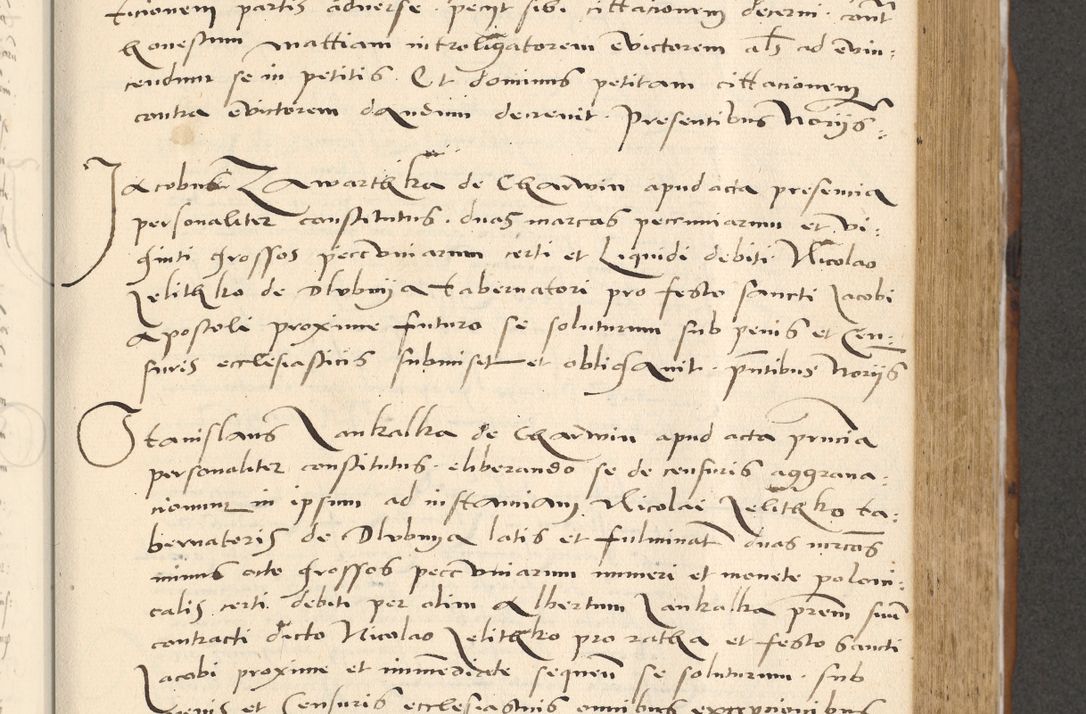 ticionem partis adverse · peciit sibi cittacionem decerni · contra
honestum Mattiam introligatorem evictorem als ad evin:
cendum se in petitis · Et dominus petitam cittacionem
contra evictorem dandum decrevit · Presentibus Noriis :
Jacobus Zawarthka de Charwin apud acta presencia
personaliter constitutus · duas marcas pecuniarum et vi:
ginti grossos peccuniarum certi et Liquidi debiti Nicolao
Jelithko de Dlubnya tabernatori pro festo sancti Jacobi
Apostoli proxime futuro se soluturum sub penis et Cen:
suris ecclesiasticis submiset et obligavit · pntibus Noriis
Stanislaus Jankalka de Charwin apud acta prncia
personaliter constitutus · eliberando se de censuris aggrava:
cionum in ipsum ad instanciam Nicolai Jelithko ta:
bernatoris de Dlubnya latis et fulminat duas mrcas
minus octo grossos peccuniarum numeri et monete poloni:
calis certi debiti per olim Albertum Jankalka prem suum
contracti dicto Nicolao Jelithko pro ratha et festo Sancti
Jacobi proxime et immediate sequen se soluturum · sub
penis et Censuris ecclesiasticis omnibus excepcionibus